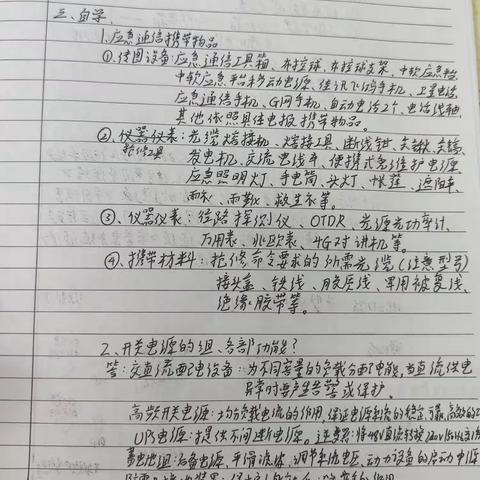 三、自学
1.应急通信携带物品
①、传图设备:应急通信工具箱、布控球、布控球支架、中软应急平台
中软应急平台移动电源、佳讯飞鸿手机、卫星电话
应急通信手机、G网手机、自动电话2个、电话线轴
其他依照具体电报携带物品。
②、仪器仪表:光缆熔接机、熔接工具、断线钳、尖锹、尖镐、
抢修工具
发电机、交流电缆车、便携式免维护电源
应急照明灯、手电筒、头灯、帐篷、遮阳伞、
雨衣、雨靴、救生衣等。
③、仪器仪表:径路探测仪、OTDR、光源光功率计、
万用表、兆欧表、4G对讲机等。
④、携带材料:抢修命令要求的所需光缆(注意型号)
接头盒、铁线、胶质线、军用被复线、
绝缘胶带等。
2、开关电源的组、各部功能?
答:交直流配电设备:为不同容量的负载分配电能,当直流供电
异常时要产生告警或保护。
高频开关电源:均分负载电流的作用,保证电源系统的稳定、可靠、高效的
UPS电源:提供不间断电源。注意:将48V直流转换
蓄电池组:后备电源,平滑滤波、调节系统电压、动力设备的启动电源